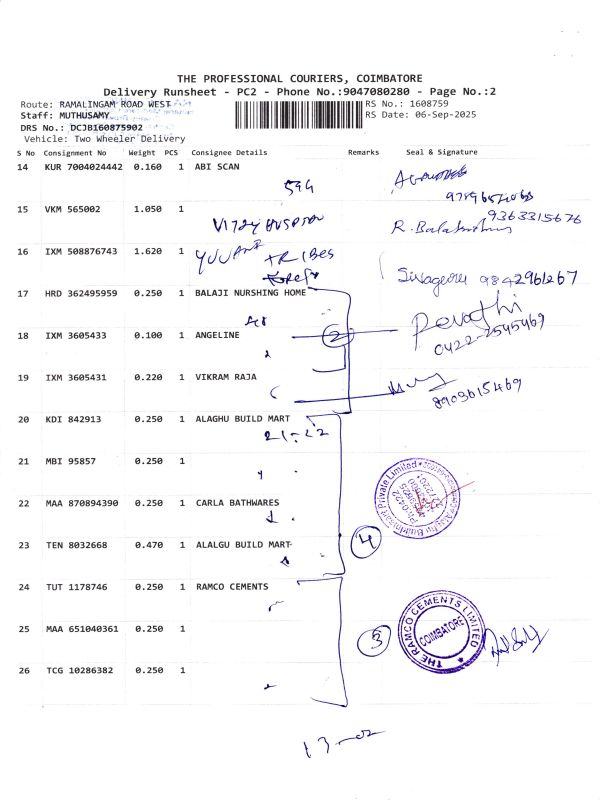 THE PROFESSIONAL COURIERS, COIMBATORE
Delivery Runsheet - PC2 - Phone No.:9047080280 - Page No.:2
Route: RAMALINGAM ROAD WEST
RS No.: 1608759
Staff: MUTHUSAMY
RS Date: 06-Sep-2025
DRS No.: DCJB160875902
Vehicle: Two Wheeler Delivery
S No Consignment No Weight PCS Consignee Details Remarks Seal & Signature
14 KUR 7004024442 0.160 1 ABI SCAN
594
15 VKM 565002 1.050 1
9363315676
R. Balakrishnan
16 IXM 508876743 1.620 1
TRIBES
9842961267
17 HRD 362495959 0.250 1 BALAJI NURSHING HOME
18 IXM 3605433 0.100 1 ANGELINE
2
0422-2545469
19 IXM 3605431 0.220 1 VIKRAM RAJA
8903615469
20 KDI 842913 0.250 1 ALAGHU BUILD MART
21-22
21 MBI 95857 0.250 1
22 MAA 870894390 0.250 1 CARLA BATHWARES
23 TEN 8032668 0.470 1 ALALGU BUILD MART
4
24 TUT 1178746 0.250 1 RAMCO CEMENTS
25 MAA 651040361 0.250 1
3
THE RAMCO CEMENTS LIMITED
COIMBATORE
26 TCG 10286382 0.250 1
13-02